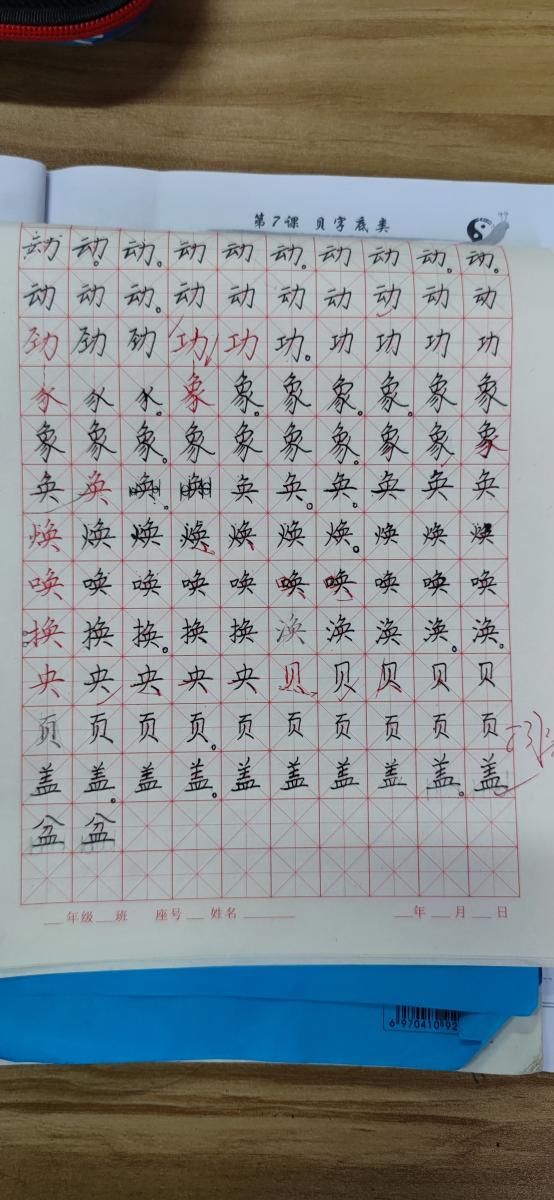 第7课 贝字底类
动 动 动 动 动 动 动 动 动 动
动 动 动 动 动 动 动 动 动 动
劲 劲 劲 功 功 功 功 功 功 功
豕 豕 豕 象 象 象 象 象 象 象
象 象 象 象 象 象 象 象 象 象
奂 奂 奂 奂 奂 奂 奂 奂 奂 奂
焕 焕 焕 焕 焕 焕 焕 焕 焕 焕
唤 唤 唤 唤 唤 唤 唤 唤 唤 唤
换 换 换 换 换 涣 涣 涣 涣 涣
央 央 央 央 央 贝 贝 贝 贝 贝
页 页 页 页 页 页 页 页 页 页
盖 盖 盖 盖 盖 盖 盖 盖 盖 盖
盆 盆
年级 班 座号 姓名 年 月 日
6 970410 92